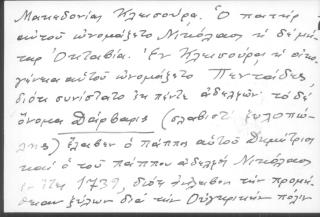 Μακεδονίας Κλεισούρα. Ὁ πατήρ
αὐτοῦ ὠνομάζετο Νικόλαος ἡ δέ μή-
τηρ Ὀκταβία. Ἐν Κλεισούρᾳ ἡ οἰκο-
γένεια αὐτοῦ ὠνομάζετο Πεντάιδες,
διότι συνίστατο ἐκ πέντε ἀδελφῶν τὸ δέ
ὄνομα Δάρβαρις (σλαβιστί ξυλοπώ-
λης) ἔλαβεν ὁ πάππος αὐτοῦ Δημήτριος
καί ὁ τοῦ πάππου ἀδελφός Νικόλαος
ἐν ἔτει 1739, διότι ἀνέλαβον τήν προμή-
θειαν ξύλων διά τήν Οὐγγρικήν πόλιν